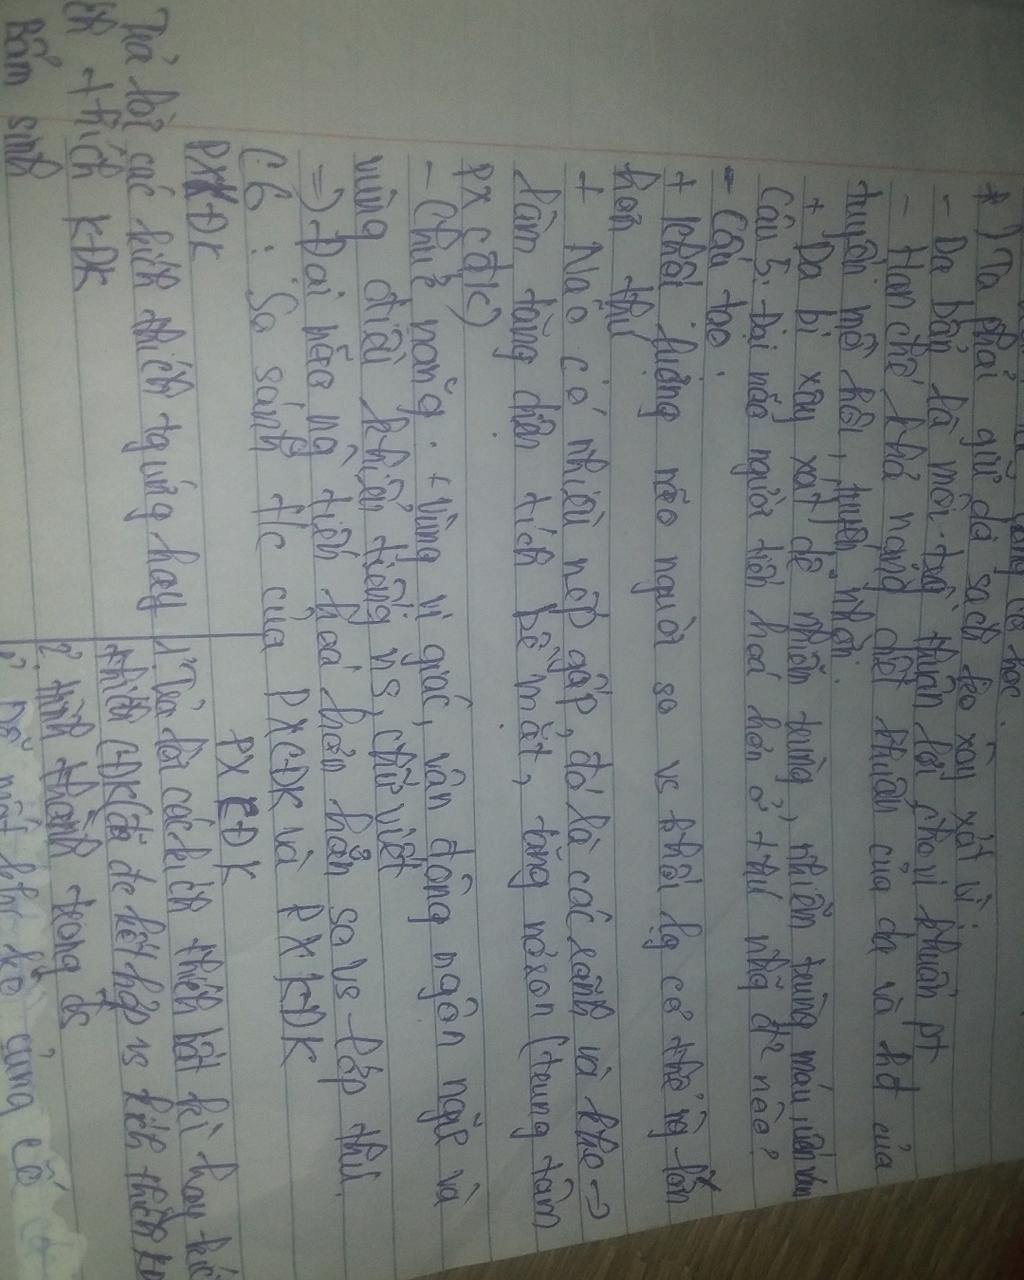 *) Ta phải giữ da sạch, tránh xây xát vì:
- Da bẩn là môi trg thuận lợi cho vi khuẩn pt
- Hạn chế khả năng diệt khuẩn của da và hđ của
tuyến mồ hôi, tuyến nhờn.
+ Da bị xây xát dễ nhiễm trùng, nhiễm trùng máu,
Câu 5: Đại não người tiến hoá hơn ở thú nhg đ² nào?
- Cấu tạo:
+ Khối lượng não người so vs khối lg cơ thể ng lớn
hơn thú
+ Não có nhiều nếp gấp, đó là các rãnh và khe ->
làm tăng diện tích bề mặt, tăng nơron (trung tâm
PX CĐK)
- Chức năng: + Vùng vị giác, vận động ngôn ngữ và
vùng điều khiển tiếng ns, chữ viết
=> Đại não ng tiến hoá hơn hẳn so vs lớp thú.
C6: So sánh t/c của PXCĐK và PXKĐK
PXKĐK PXCĐK
Trả lời các kích thích tg ứng hay 1' Trả lời các kích thích bất kì hay kíc
th thích KĐK thích CĐK (đã đc kết hợp vs kích thích KĐ
Bẩm sinh 2' Hình thành trong đs
3' Dễ mất khi ko củng cố